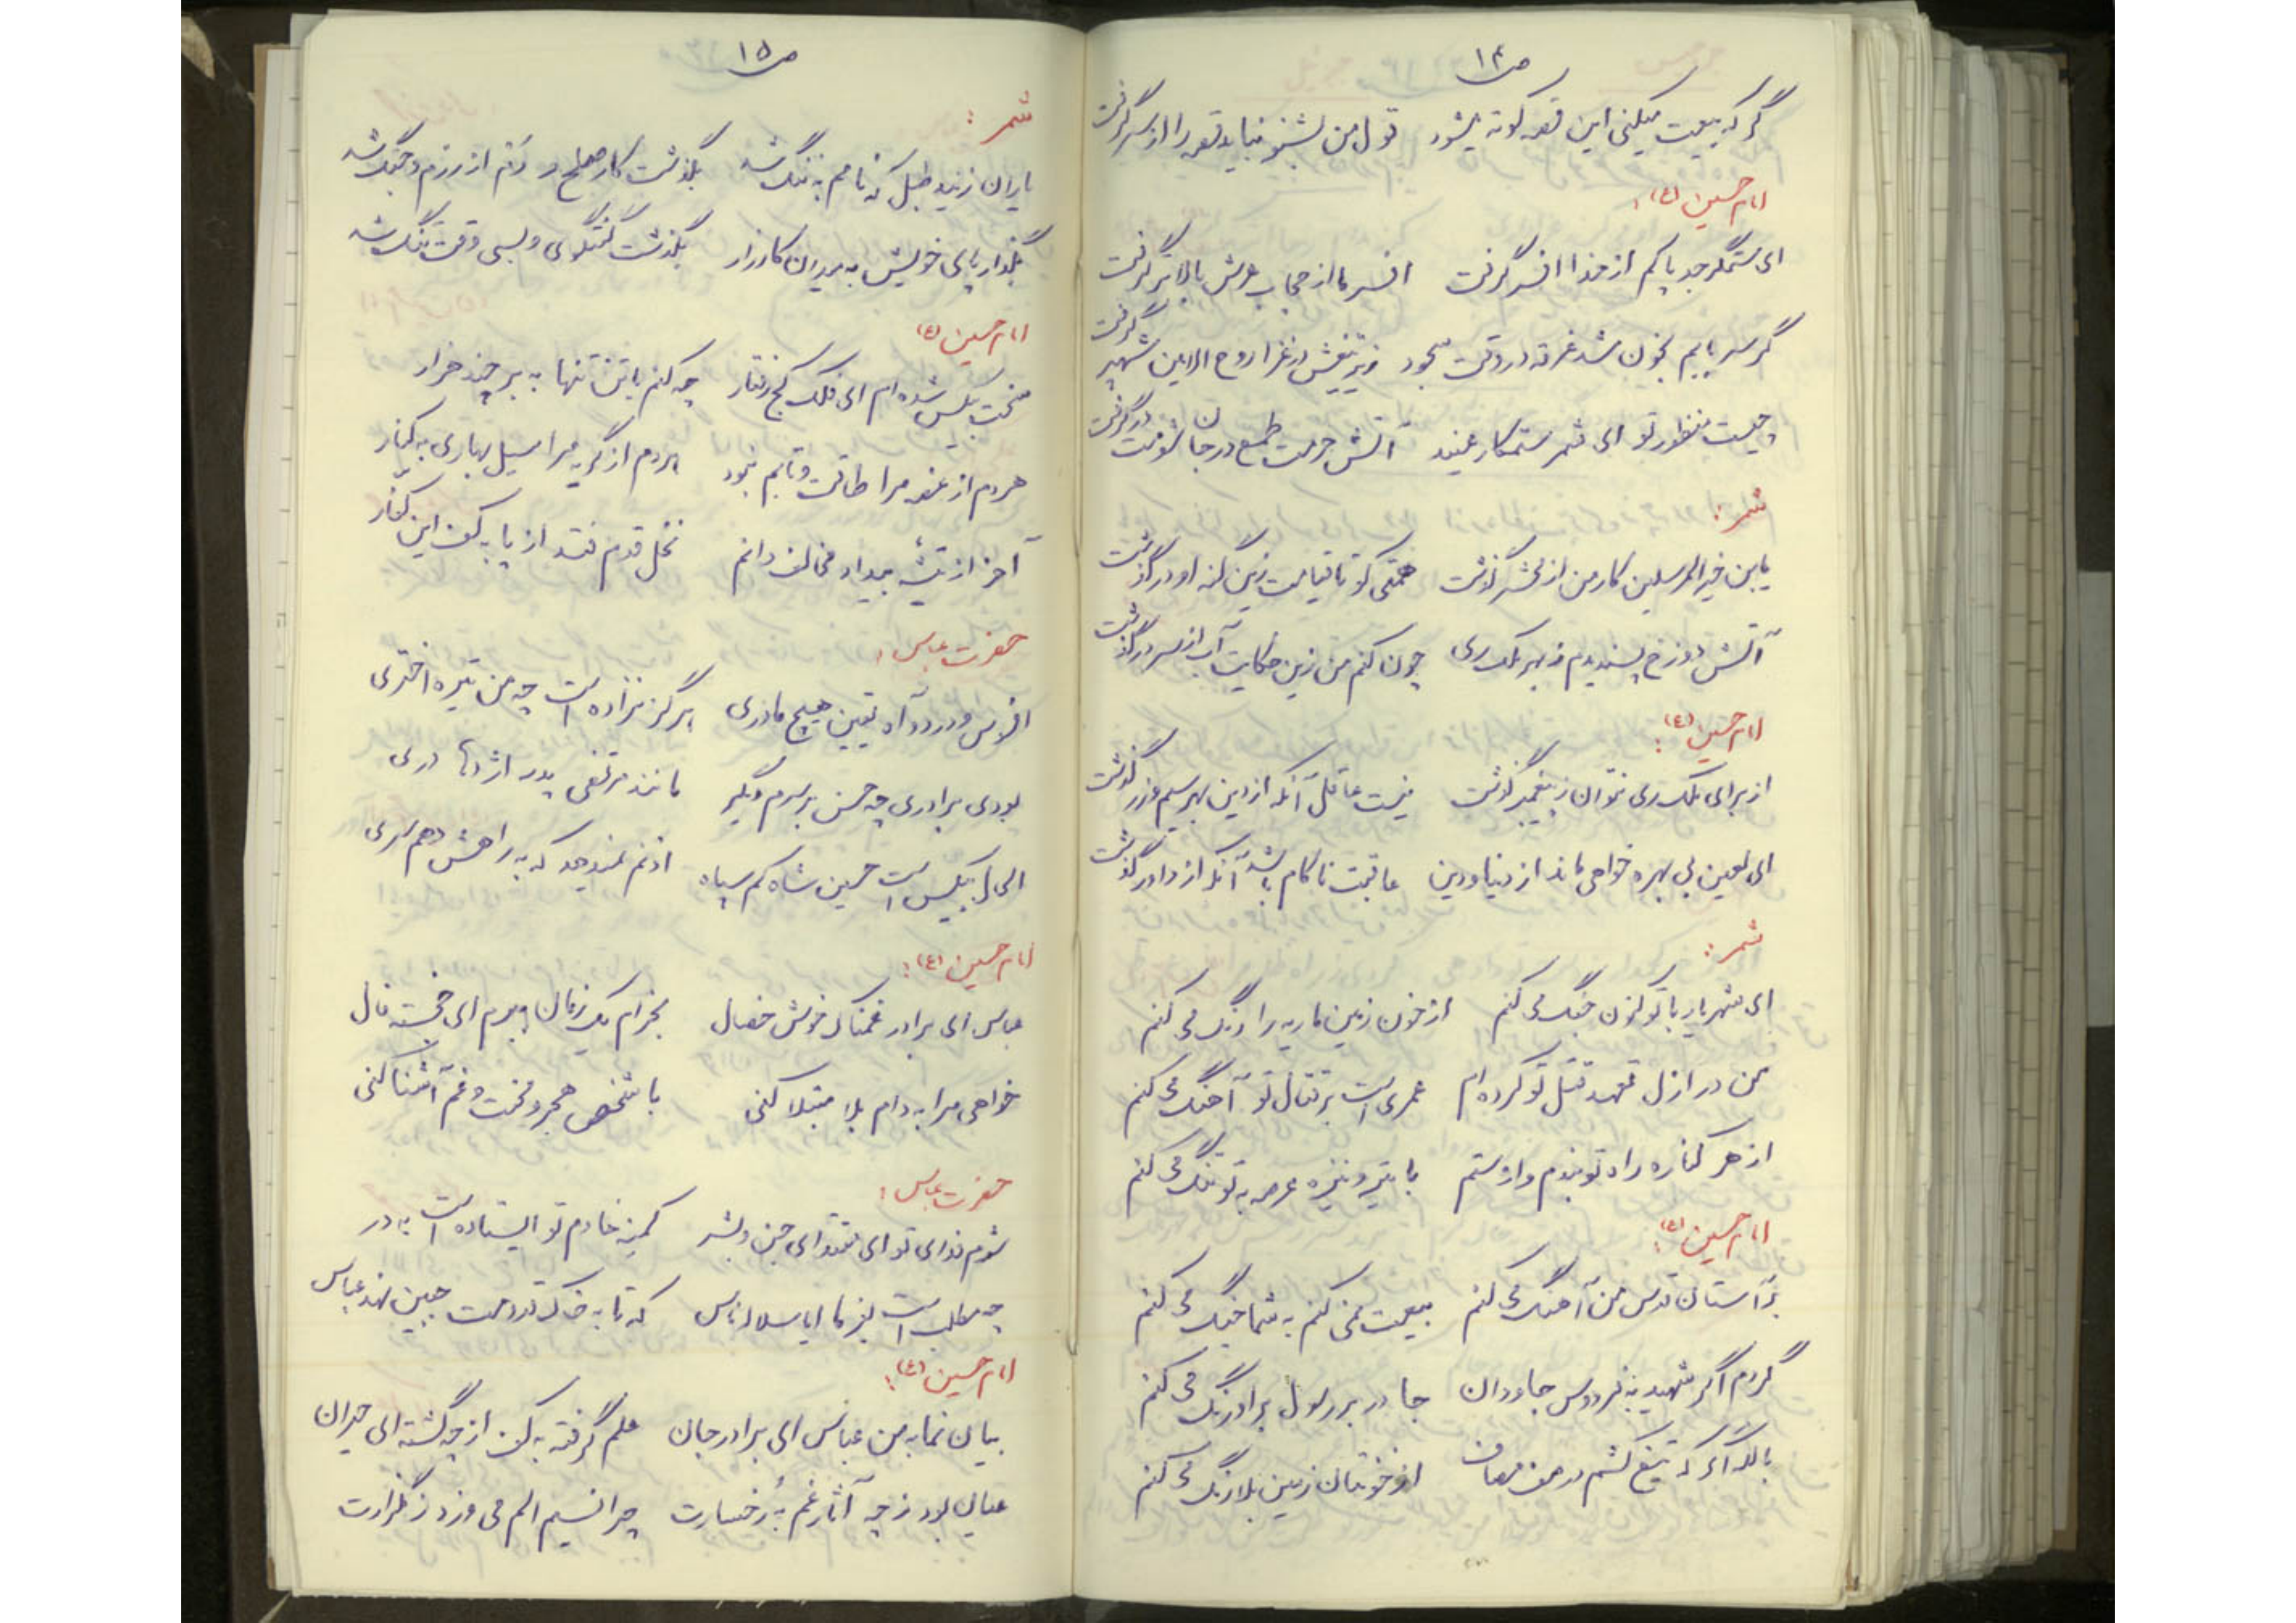 ص ۱۴
گر که بیعت میکنی این قصه کوته میشود قول من بشنو نباید قصه را از سر گرفت
امام حسین (ع):
ای ستمگر جد پاکم از خدا افسر گرفت افسر ما از حجاب عرش بالاتر گرفت
گر سر بابم بخون شد غرقه در وقت سجود زیر تیغش در غزا روح الامین شهپر گرفت
چیست منظور تو ای شمر ستمکار عنید آتش حرص طمع در جان شومت در گرفت
شمر:
یابن خیر المرسلین کار من از محشر گذشت همتی کو تا قیامت زین گنه او درگذشت
آتش دوزخ پسندیدم ز بهر ملک ری چون کنم من زین حکایت آب از سر درگذشت
امام حسین (ع):
از برای ملک ری نتوان ز پیغمبر گذشت نیست عاقل آنکه از دین بهر سیم و زر گذشت
ای لعین بی بهره خواهی ماند از دنیا و دین عاقبت ناکام باشد آنکه از داور گذشت
شمر:
ای شهریار با تو کنون جنگ می کنم از خون زمین ماریه را رنگ می کنم
من در ازل تعهد قتل تو کرده ام عمری است بر قتال تو آهنگ می کنم
از هر کناره راه تو بندم و از ستم با تیر و نیزه عرصه به تو تنگ می کنم
امام حسین (ع):
بر آستان قدس من آهنگ می کنم بیعت نمی کنم به شما جنگ می کنم
گردم اگر شهید به فردوس جاودان جا در بر رسول برادر نگ می کنم
بالله اگر که تیغ کشم در صف مصاف از خونتان زمین بلا رنگ می کنم
ص ۱۵
شمر:
یاران زنید طبل که نامم به ننگ شد بگذشت کار صلح و دلم از رزم و جنگ شد
بگذار پای خویش به میدان کارزار بگذشت گفتگوی و بسی وقت تنگ شد
امام حسین (ع)
سخت بیکس شده ام ای فلک کج رفتار چه کنم با تن تنها به بر چند هزار
هر دم از غصه مرا طاقت و تابم نبود بردم از گریه مرا سیل بهاری به کنار
آخر از تیشه بیداد مخالف دانم نخل قدم فتد از پا به کف این کفار
حضرت عباس:
افسوس و درد و آه یقین هیچ مادری هرگز نزاده است چه من تیره اختری
بودی برادری چه حسن بر سرم دگر مانند مرتضی پدر اژدها دری
الحال بیکس است حسین شاه کم سپاه اذنم نمیدهد که به راهش دهم سری
امام حسین (ع):
عباس ای برادر غمناک خوش خصال بخرام یک زمان ببرم ای خجسته فال
خواهی مرا به دام بلا مبتلا کنی با شخص هجر و محنت و غم آشنا کنی
حضرت عباس:
شوم فدای تو ای مقتدای جن و بشر کمینه خادم تو ایستاده است به در
چه مطلب است بفرما ایا سلاله ناس که تا به خاک قدومت جبین نهد عباس
امام حسین (ع):
بیان نما به من عباس ای برادر جان علم گرفته به کف از چه گشته ای حیران
عیان بود ز چه آثار غم به رخسارت چرا نسیم الم می وزد ز گلزارت